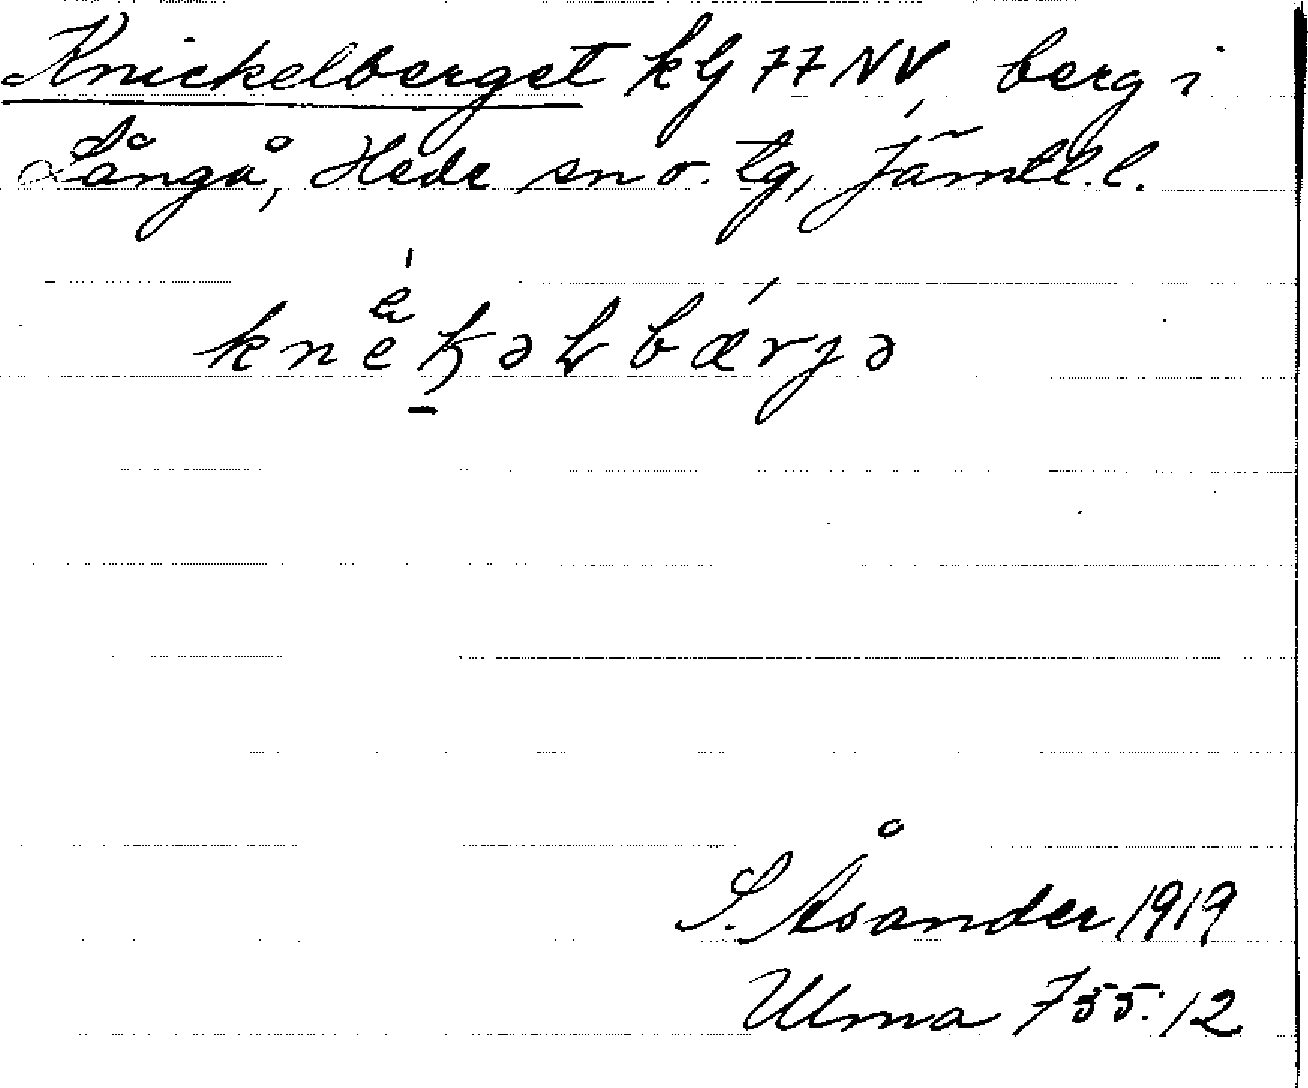 Knickelberget kbl 77 NV, berg i
Långå, Hede sn o. tg, Jämtl. l.
knèkəlbárjə
S. Åsander 1919
Ulma 755:12